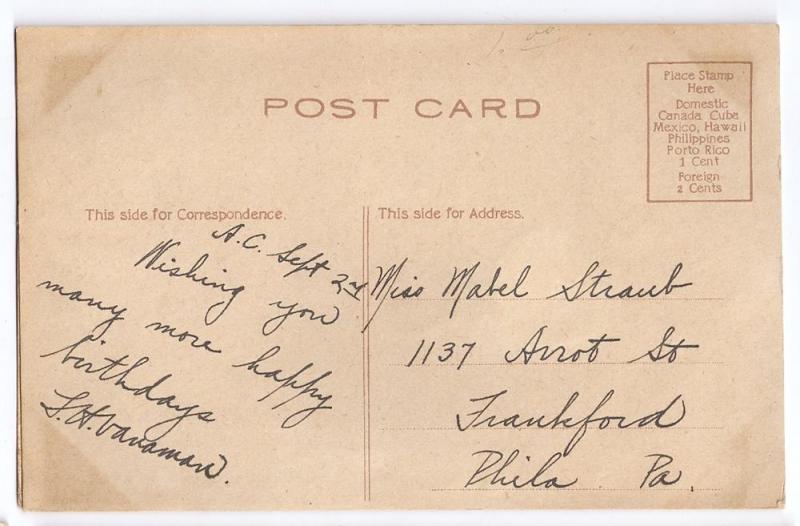 POST CARD
Place Stamp
Here
Domestic
Canada Cuba
Mexico, Hawaii
Philippines
Porto Rico
1 Cent
Foreign
2 Cents
This side for Correspondence.
A.C. Sept 2nd
Wishing you
many more happy
birthdays
L.H. Vanaman.
This side for Address.
Miss Mabel Straub
1137 Arrot St
Frankford
Phila Pa.